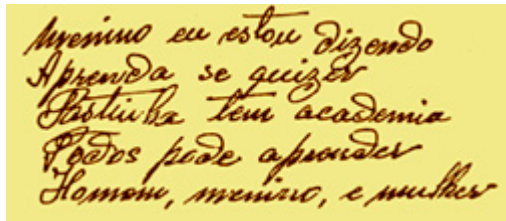 Menino eu estou dizendo
Aprenda se quizer
Pastinha tem academia
Todos pode aprender
Homem, menino, e mulher